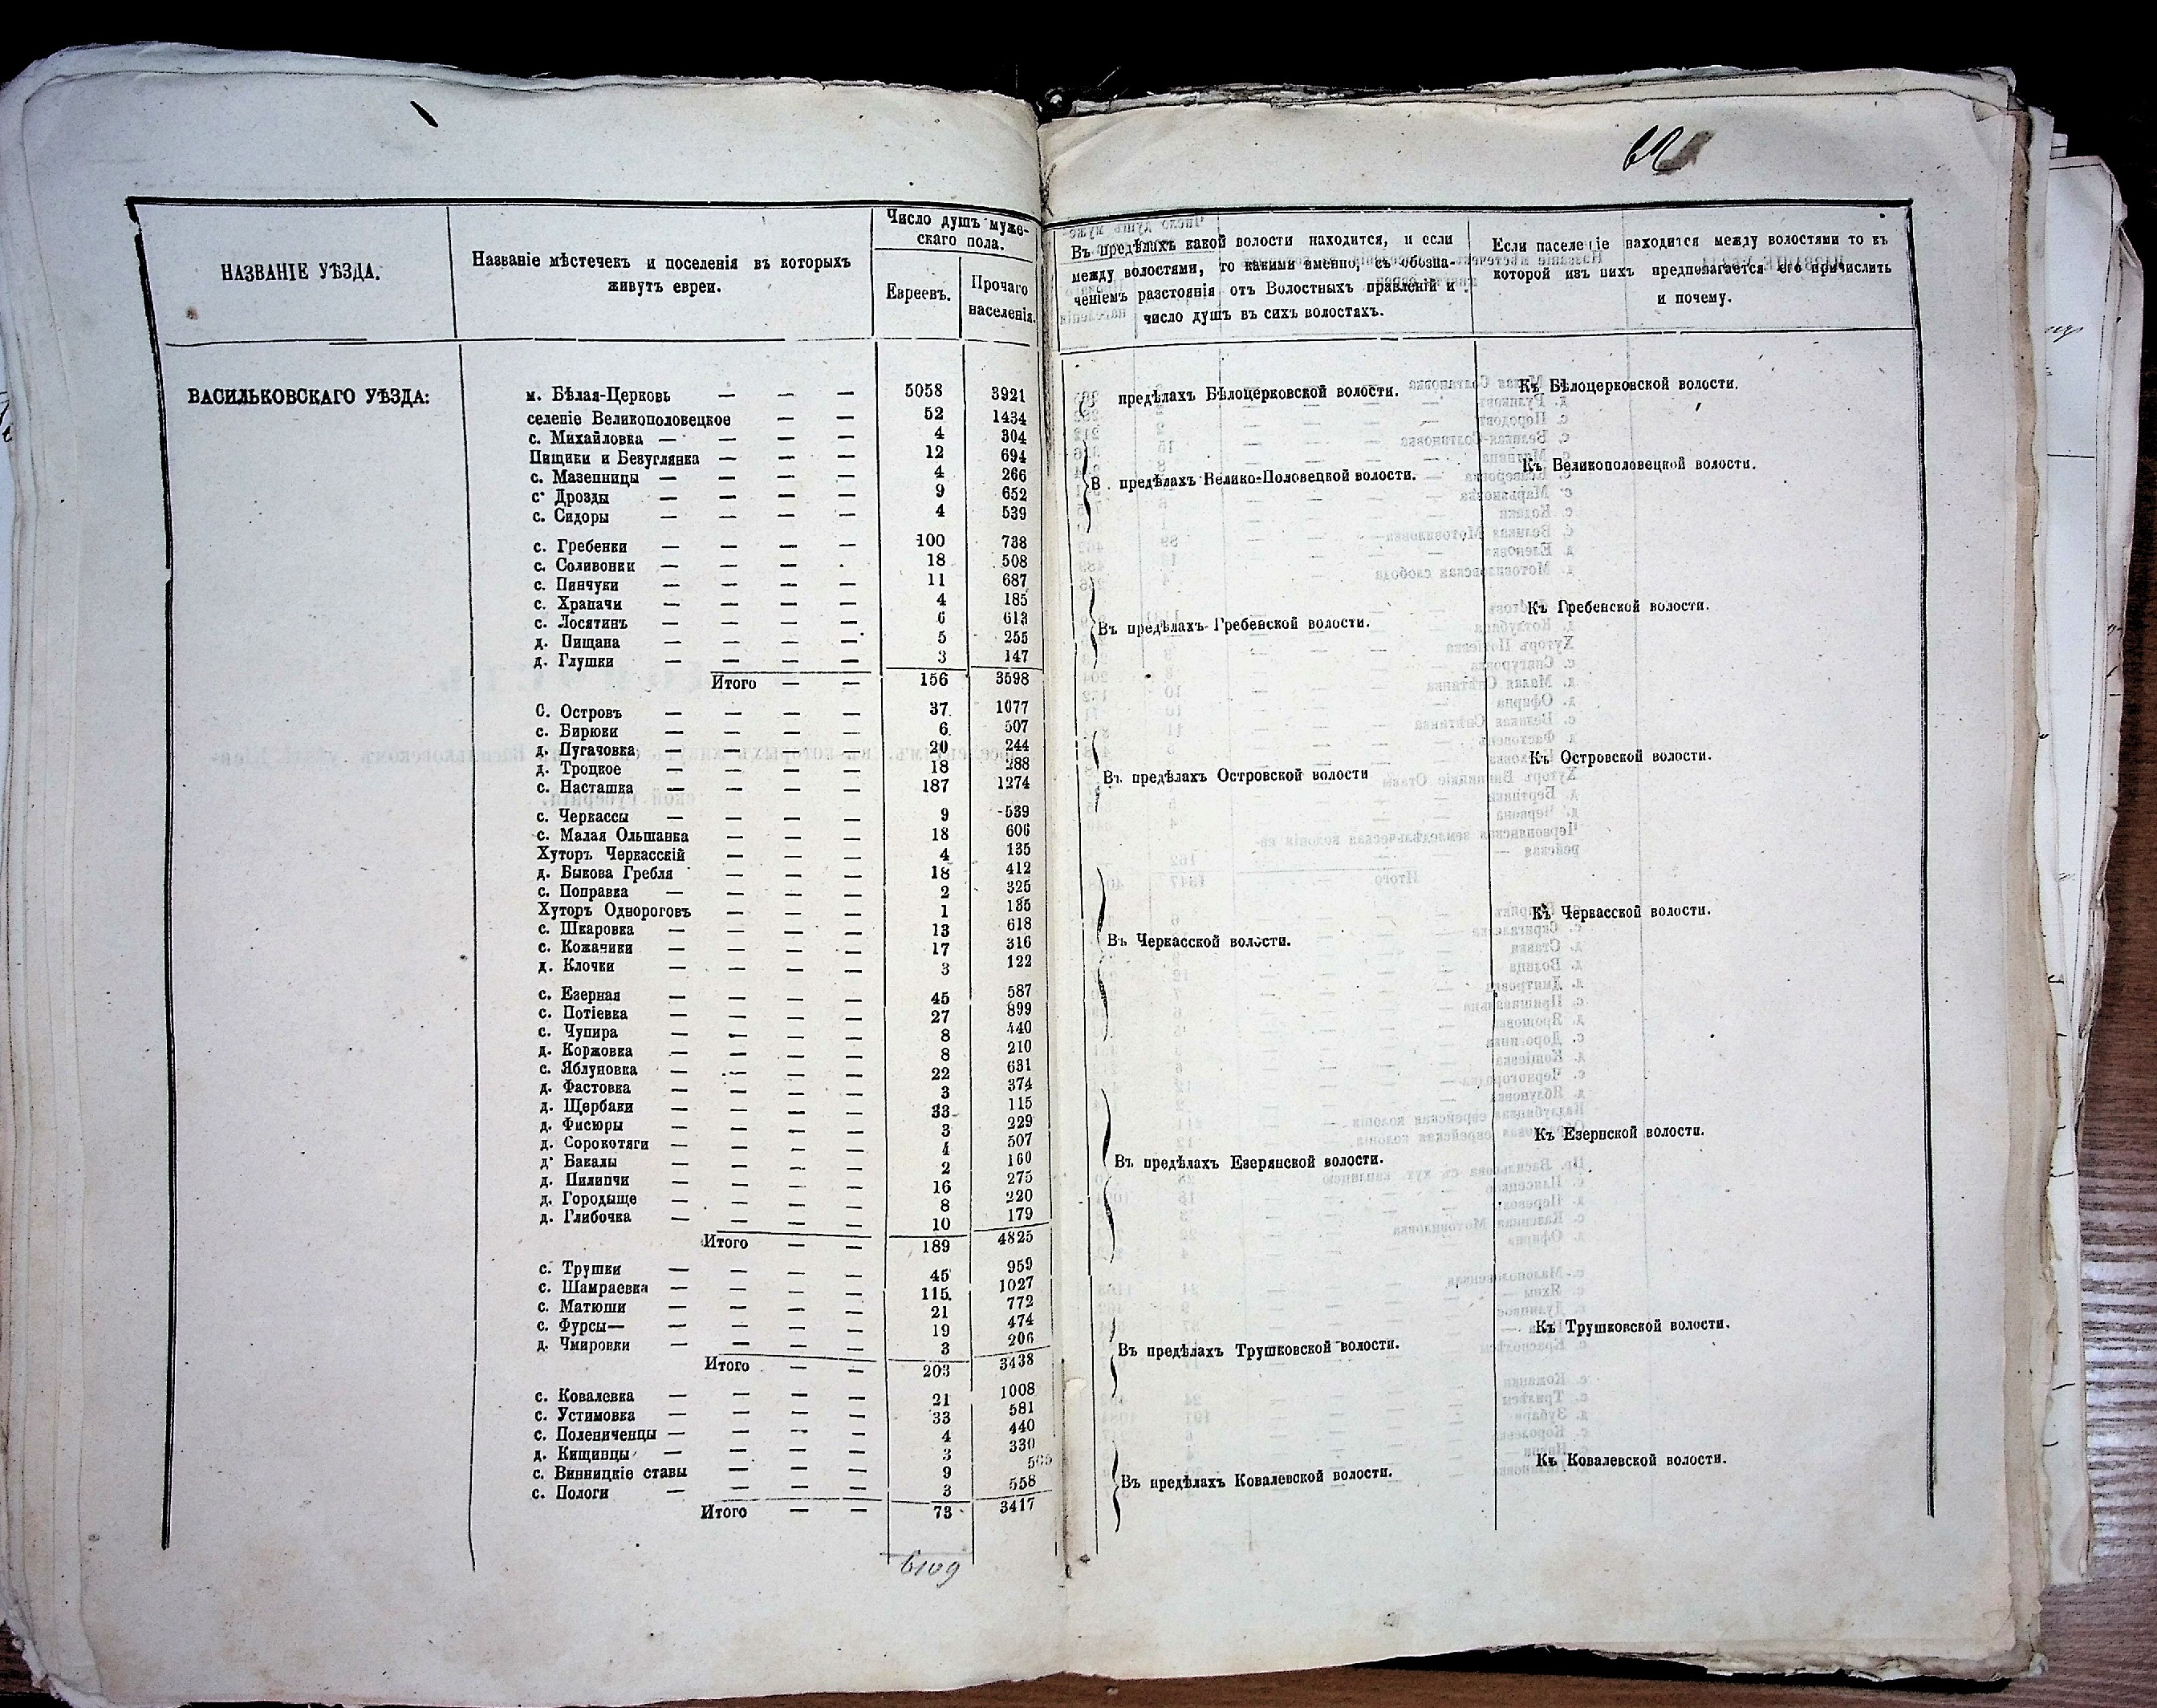 НАЗВАНІЕ УѢЗДА.
Названіе мѣстечекъ и поселенія въ которыхъ
живутъ евреи.
Число душъ муже-
скаго пола.
Евреевъ.
Прочаго
населенія.
Въ предѣлахъ какой волости находится, и если
между волостями, то какими именно, съ обозна-
ченіемъ разстоянія отъ Волостныхъ правленій и
число душъ въ сихъ волостяхъ.
Если населеніе находится между волостями то къ
которой изъ нихъ предполагается его причислить
и почему.
ВАСИЛЬКОВСКАГО УѢЗДА:
м. Бѣлая-Церковь — — — 5058 3921 предѣлахъ Бѣлоцерковской волости. Къ Бѣлоцерковской волости.
селеніе Великополовецкое — — 52 1434
с. Михайловка — — — — 4 304
Пищики и Безуглянка — — — 12 694
с. Мазепинцы — — — — 4 266
с. Дрозды — — — — 9 652
с. Сидоры — — — — 4 539
В предѣлахъ Велико-Половецкой волости. Къ Великополовецкой волости.
с. Гребенки — — — — 100 738
с. Соливонки — — — 18 508
с. Пинчуки — — — — 11 687
с. Храпачи — — — — 4 185
с. Лосятинъ — — — — 6 613
д. Пищана — — — — 5 255
д. Глушки — — — — 3 147
Итого — — 156 3598
Въ предѣлахъ Гребенской волости. Къ Гребенской волости.
С. Островъ — — — — 37 1077
с. Бирюки — — — — 6 507
д. Пугачовка — — — — 20 244
д. Троцкое — — — — 18 288
с. Насташка — — — — 187 1274
Въ предѣлахъ Островской волости Къ Островской волости.
с. Черкассы — — — — 9 539
с. Малая Ольшанка — — — 18 606
Хуторъ Черкасскій — — — 4 135
д. Быкова Гребля — — — 18 412
с. Поправка — — — — 2 325
Хуторъ Однороговъ — — — 1 135
с. Шкаровка — — — — 13 618
с. Кожаники — — — — 17 316
д. Клочки — — — — 3 122
Въ Черкасской волости. Къ Черкасской волости.
с. Езерная — — — — 45 587
с. Потіевка — — — — 27 899
с. Чупира — — — — 8 440
д. Коржовка — — — — 8 210
с. Яблуновка — — — — 22 631
д. Фастовка — — — — 3 374
д. Щербаки — — — — 33 115
д. Фисюры — — — — 3 229
д. Сорокотяги — — — — 4 507
д. Бакалы — — — — 2 160
д. Пилипчи — — — — 16 275
д. Городыще — — — — 8 220
д. Глибочка — — — — 10 179
Итого — — 189 4825
Въ предѣлахъ Езерянской волости. Къ Езернской волости.
с. Трушки — — — — 45 959
с. Шамраевка — — — — 115 1027
с. Матюши — — — — 21 772
с. Фурсы — — — — 19 474
д. Чмировки — — — — 3 206
Итого — — 203 3438
Въ предѣлахъ Трушковской волости. Къ Трушковской волости.
с. Ковалевка — — — — 21 1008
с. Устимовка — — — — 33 581
с. Полениченцы — — — — 4 440
д. Кищинцы — — — — 3 330
с. Винницкіе ставы — — — 9
с. Пологи — — — — 3 558
Итого — — 73 3417
Въ предѣлахъ Ковалевской волости. Къ Ковалевской волости.
6109